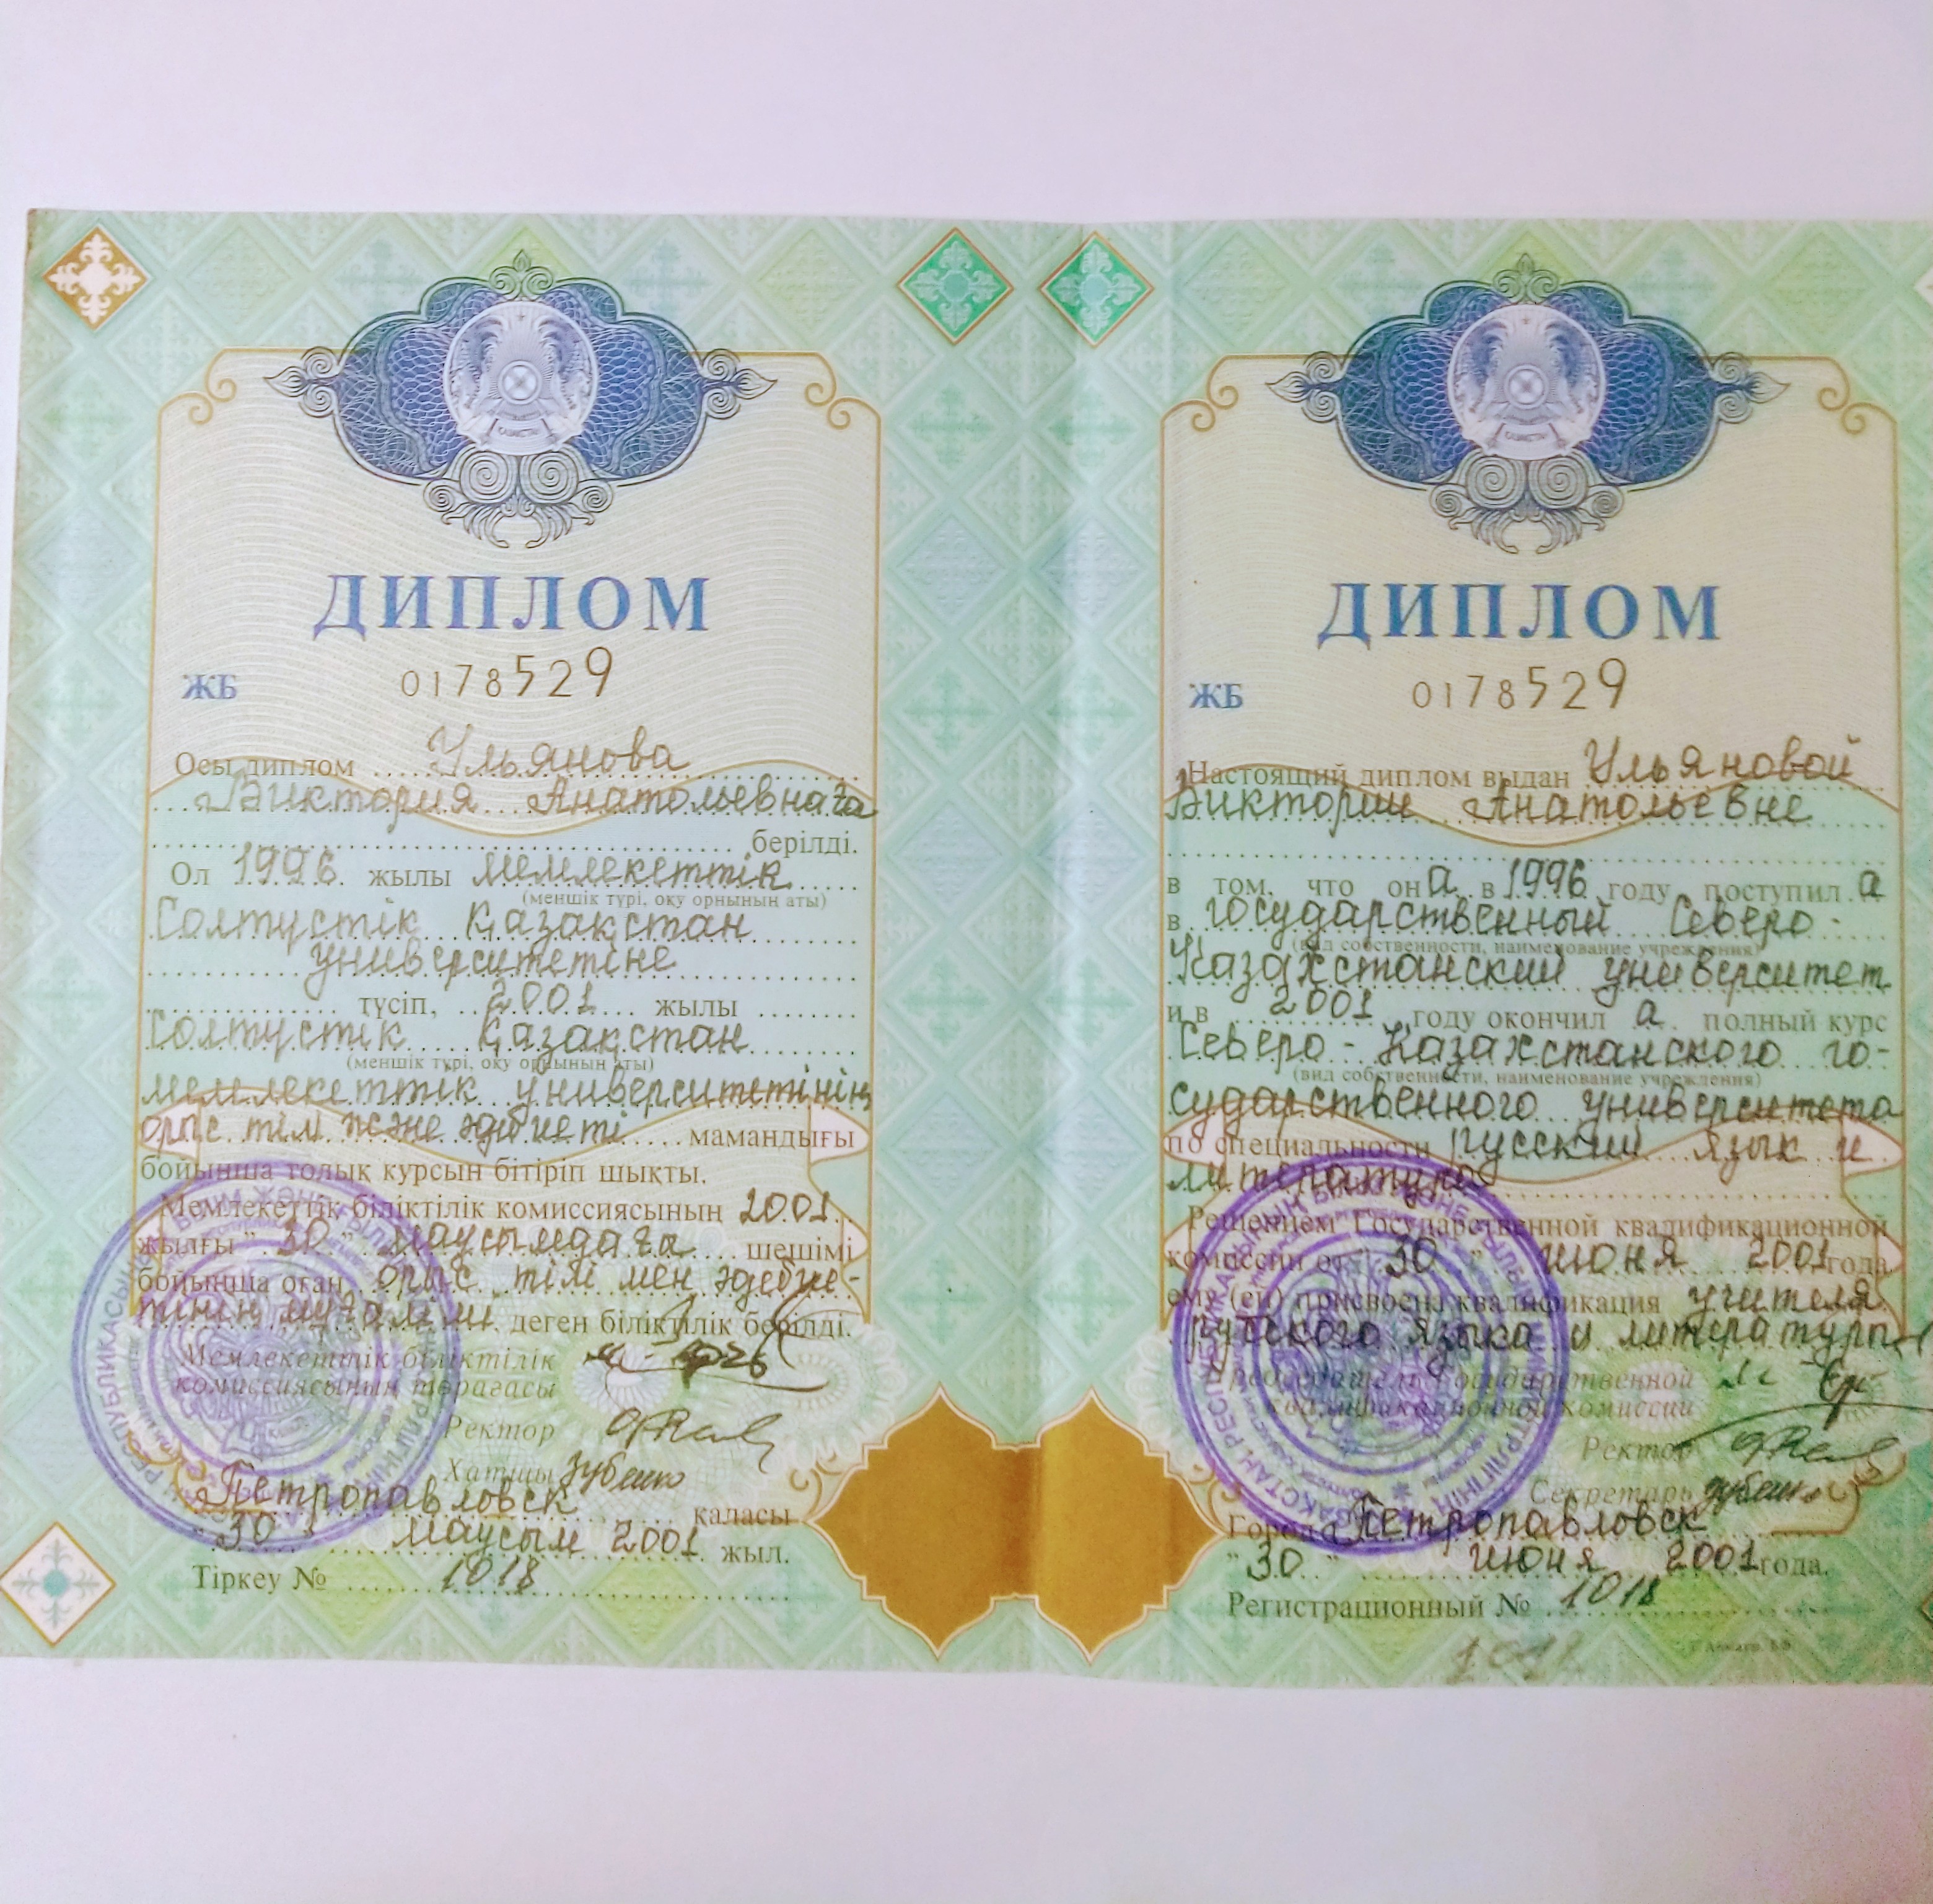 ДИПЛОМ
ЖБ 0178529
Осы диплом Ульянова
Виктория Анатольевнаға
берілді.
Ол 1996 жылы мемлекеттік
(меншік түрі, оқу орнының аты)
Солтустік Қазақстан
университетіне
түсіп, 2001 жылы
Солтустік Қазақстан
(меншік түрі, оқу орнының аты)
мемлекеттік университетінің
орыс тілі және әдбиеті мамандығы
бойынша толық курсын бітіріп шықты.
Мемлекеттік біліктілік комиссиясының 2001
жылғы "30" маусымдаға шешімі
бойынша оған орыс тілі мен әдебие-
тінің мұғалімі деген біліктілік берілді.
Мемлекеттік біліктілік
комиссиясының төрағасы
Ректор
Хатшы Зубенко
Петропавловск қаласы
"30" маусым 2001 жыл.
Тіркеу № 1018
ДИПЛОМ
ЖБ 0178529
Настоящий диплом выдан Ульяновой
Виктории Анатольевне
в том, что он а в 1996 году поступил а
в государственный Северо-
(вид собственности, наименование учреждения)
Казахстанский университет
и в 2001 году окончил а полный курс
Северо-Казахстанского го-
(вид собственности, наименование учреждения)
сударственного университета
по специальности русский язык и
литература
Решением Государственной квалификационной
комиссии от "30" июня 2001 года
ему (ей) присвоена квалификация учителя
русского языка и литературы
Председатель Государственной
квалификационной комиссии
Ректор
Секретарь Зубенко
Город Петропавловск
"30" июня 2001 года.
Регистрационный № 1018
1018